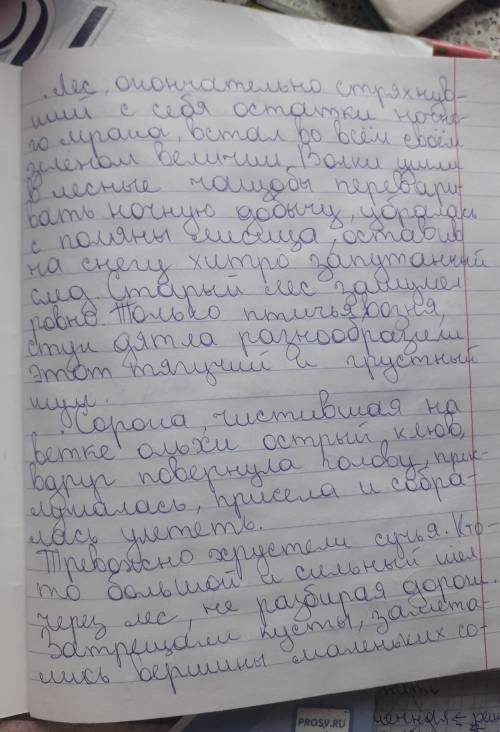 Лес, окончательно стряхнув-
ший с себя остатки ночно-
го мрака, встал во всём своём
зеленом величии. Волки ушли
в лесные чащобы перевари-
вать ночную добычу, убралась
с поляны лисица, оставив
на снегу хитро запутанный
след. Старый лес зашумел
ровно. Только птичья возня,
стук дятла разнообразили
этот тягучий и грустный
шум.
Сорока, чистившая на
ветке ольхи острый клюв,
вдруг повернула голову, прис-
лушалась, присела и собра-
лась улететь.
Тревожно хрустели сучья. Кто-
то большой и сильный шел
через лес, не разбирая дороги.
Затрещали кусты, замета-
лись вершины маленьких со-
PROSV.RU